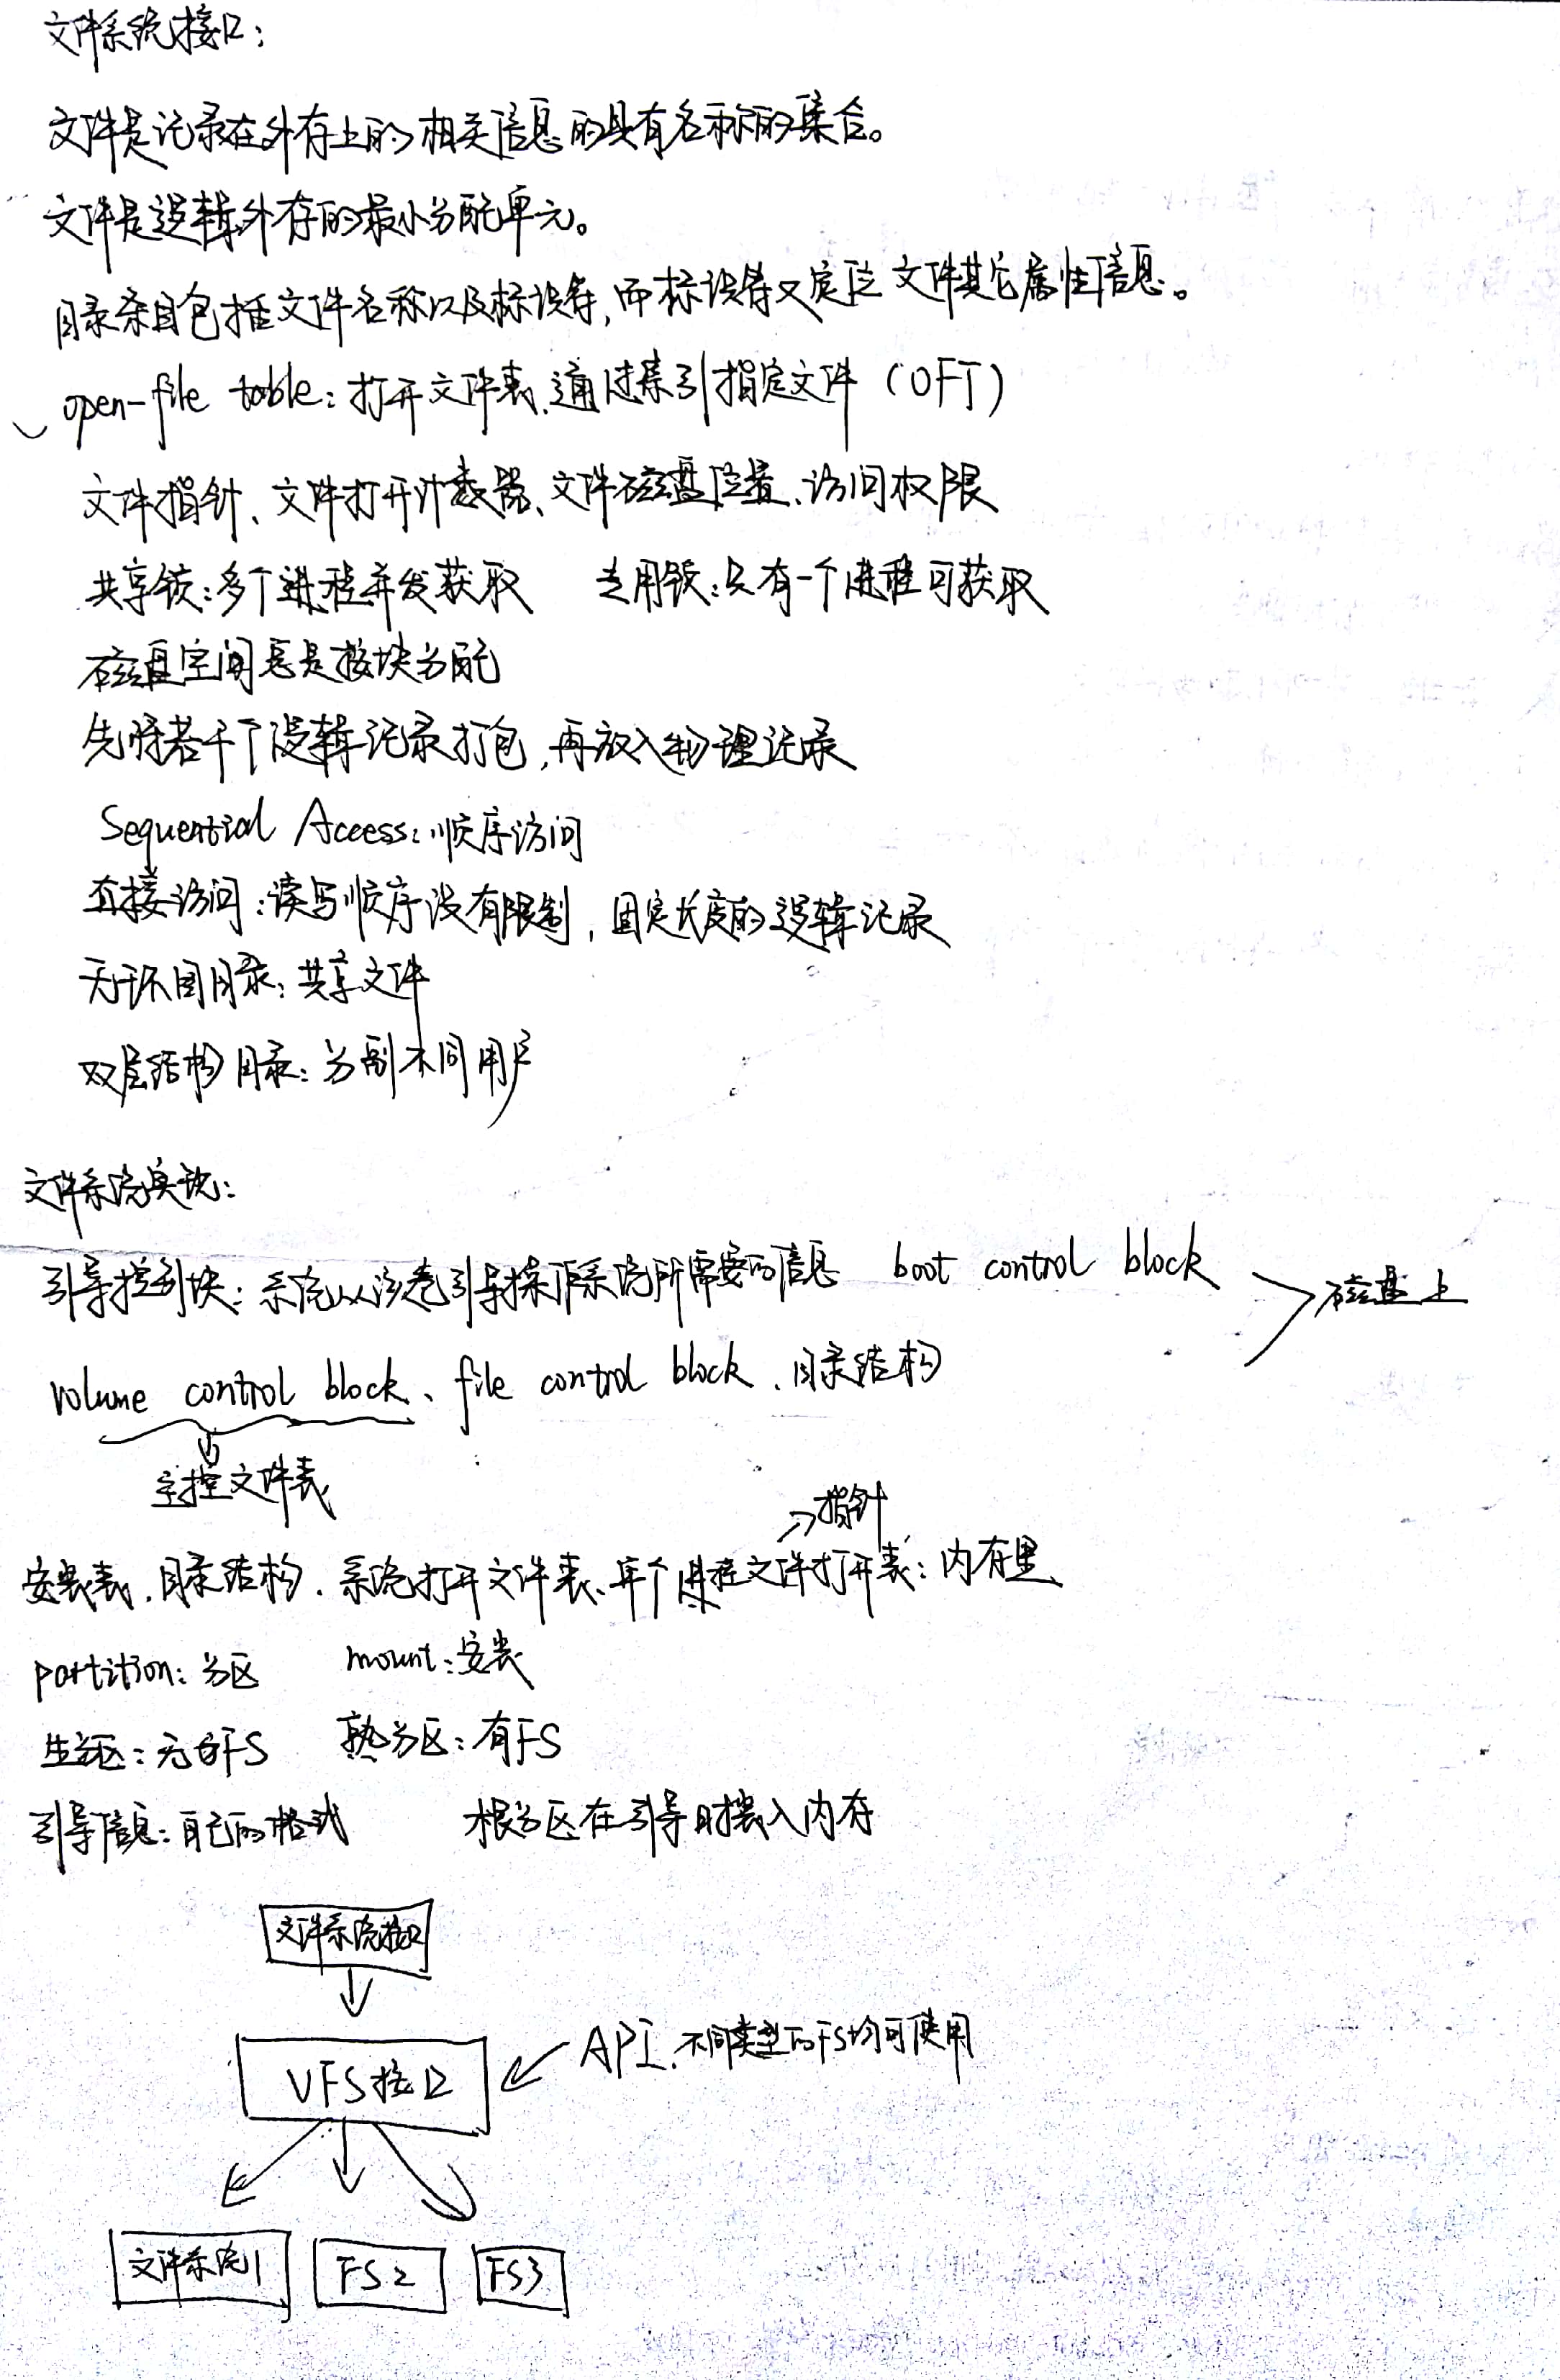 文件系统接口：
文件是记录在外存上的相关信息的具有名称的集合。
文件是逻辑外存的最小分配单元。
目录条目包括文件名称以及标识符，而标识符又定位文件其它属性信息。
open-file table：打开文件表、通过索引指定文件（OFT）
文件指针、文件打开计数器、文件磁盘位置、访问权限
共享锁：多个进程并发获取 专用锁：只有一个进程可获取
磁盘空间总是按块分配
先将若干个逻辑记录打包，再放入物理记录
Sequential Access：顺序访问
直接访问：读写顺序没有限制，固定长度的逻辑记录
无环图目录：共享文件
双层结构目录：分割不同用户
文件系统实现：
引导控制块：系统从该卷引导操作系统所需要的信息 boot control block
磁盘上
volume control block、file control block、目录结构
主控文件表
指针
安装表、目录结构、系统打开文件表、单个进程文件打开表：内存里
partition：分区 mount：安装
生分区：无FS 熟分区：有FS
引导信息：自己的格式 根分区在引导时装入内存
文件系统接口
API、不同类型的FS均可使用
VFS接口
文件系统1 FS2 FS3